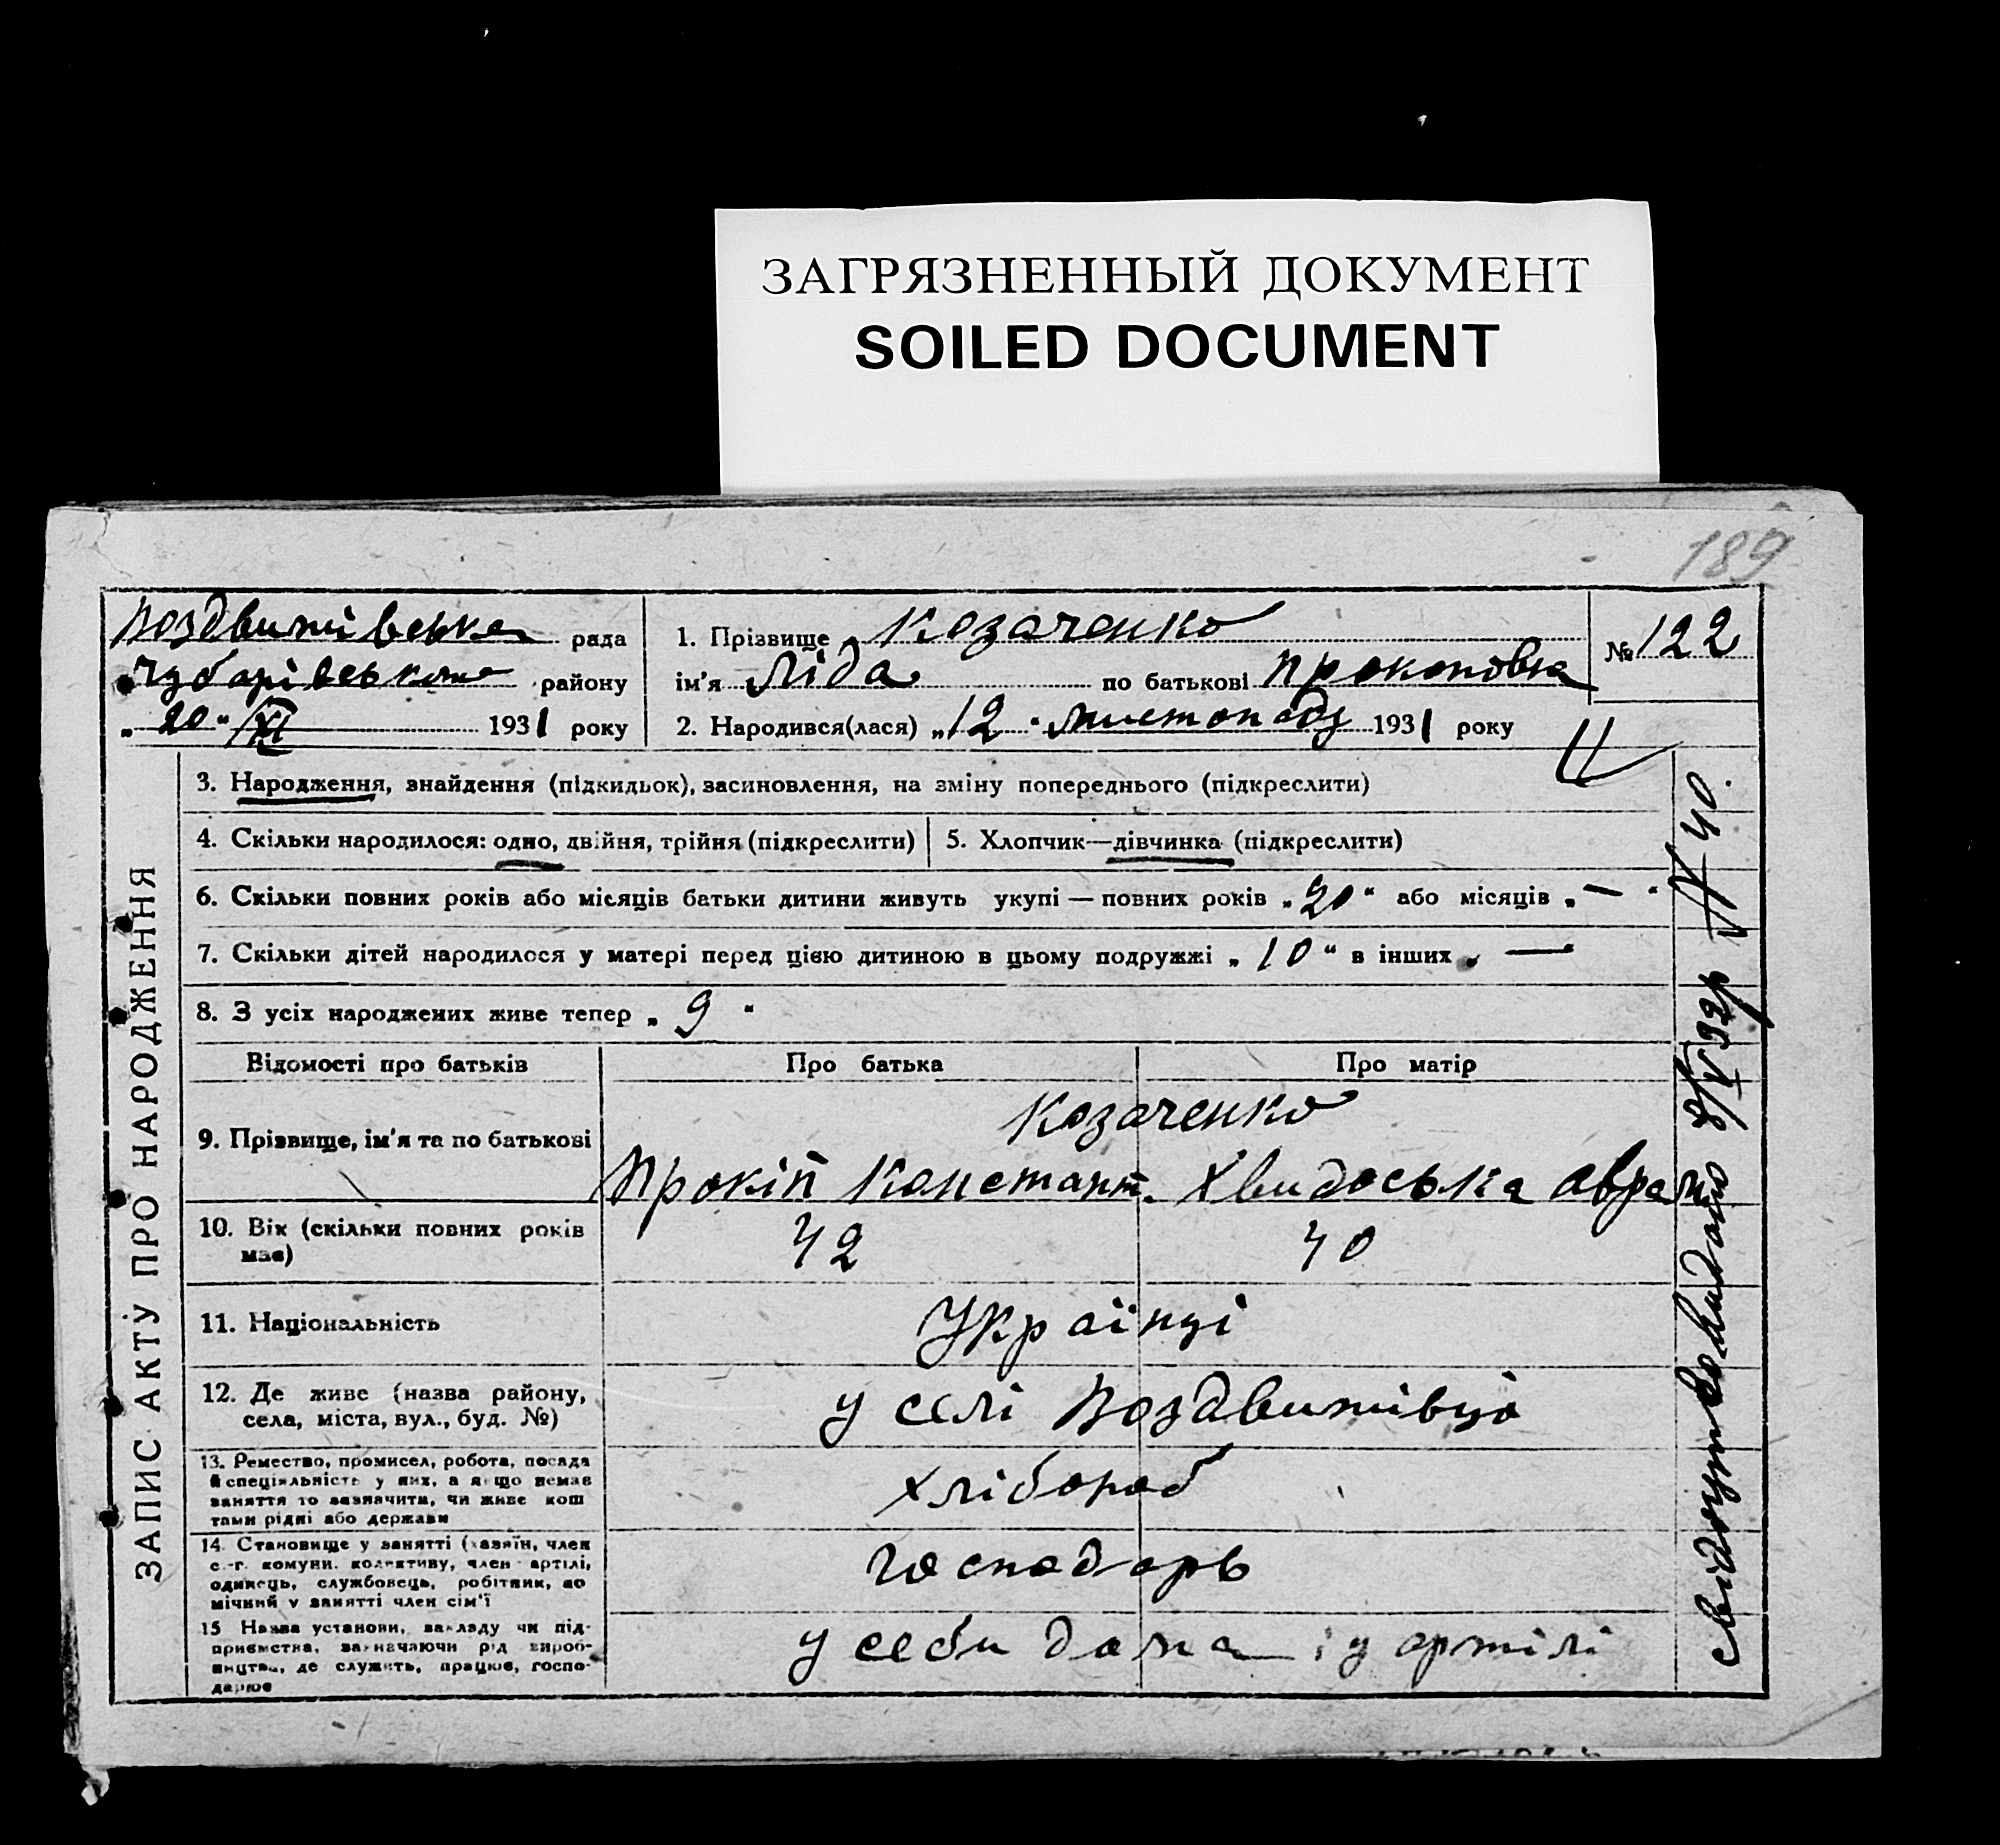 ЗАГРЯЗНЕННЫЙ ДОКУМЕНТ
SOILED DOCUMENT
189
Воздвижівська рада
Чубарівського району
„20“ XI 1931 року
1. Прізвище Козаченко
ім'я Ліда по батькові Прокоповна
№ 122
2. Народився(лася) „12“ листопаду 1931 року
ЗАПИС АКТУ ПРО НАРОДЖЕННЯ
3. Народження, знайдення (підкидьок), засиновлення, на зміну попереднього (підкреслити)
4. Скільки народилося: одно, двійня, трійня (підкреслити)
5. Хлопчик—дівчинка (підкреслити)
6. Скільки повних років або місяців батьки дитини живуть укупі — повних років „20“ або місяців „—“
7. Скільки дітей народилося у матері перед цією дитиною в цьому подружжі „10“ в інших „—
8. З усіх народжених живе тепер „9“
Відомості про батьків Про батька Про матір
9. Прізвище, ім'я та по батькові
Козаченко
Прокіп Констант. Хвидоська Аврам
10. Вік (скільки повних років має)
42 40
11. Національність
Українці
12. Де живе (назва району,
села, міста, вул., буд. №)
у селі Воздвижівці
13. Ремество, промисел, робота, посада
й спеціяльність у них, а якщо немає
заняття то зазначити, чи живе кош
тами рідні або держави
хлібороб
14. Становище у занятті (хазяїн, член
с.-г. комуни. колективу, член артілі,
одинець, службовець, робітник, по
мічний у занятті член сім'ї
господарь
15 Назва установи, закладу чи під-
приємства, зазначаючи рід вироб-
ництва, де служить, працює, госпо-
дарює
у себи дома і у артілі
свідоцтво видано 8/V 32р № 40.